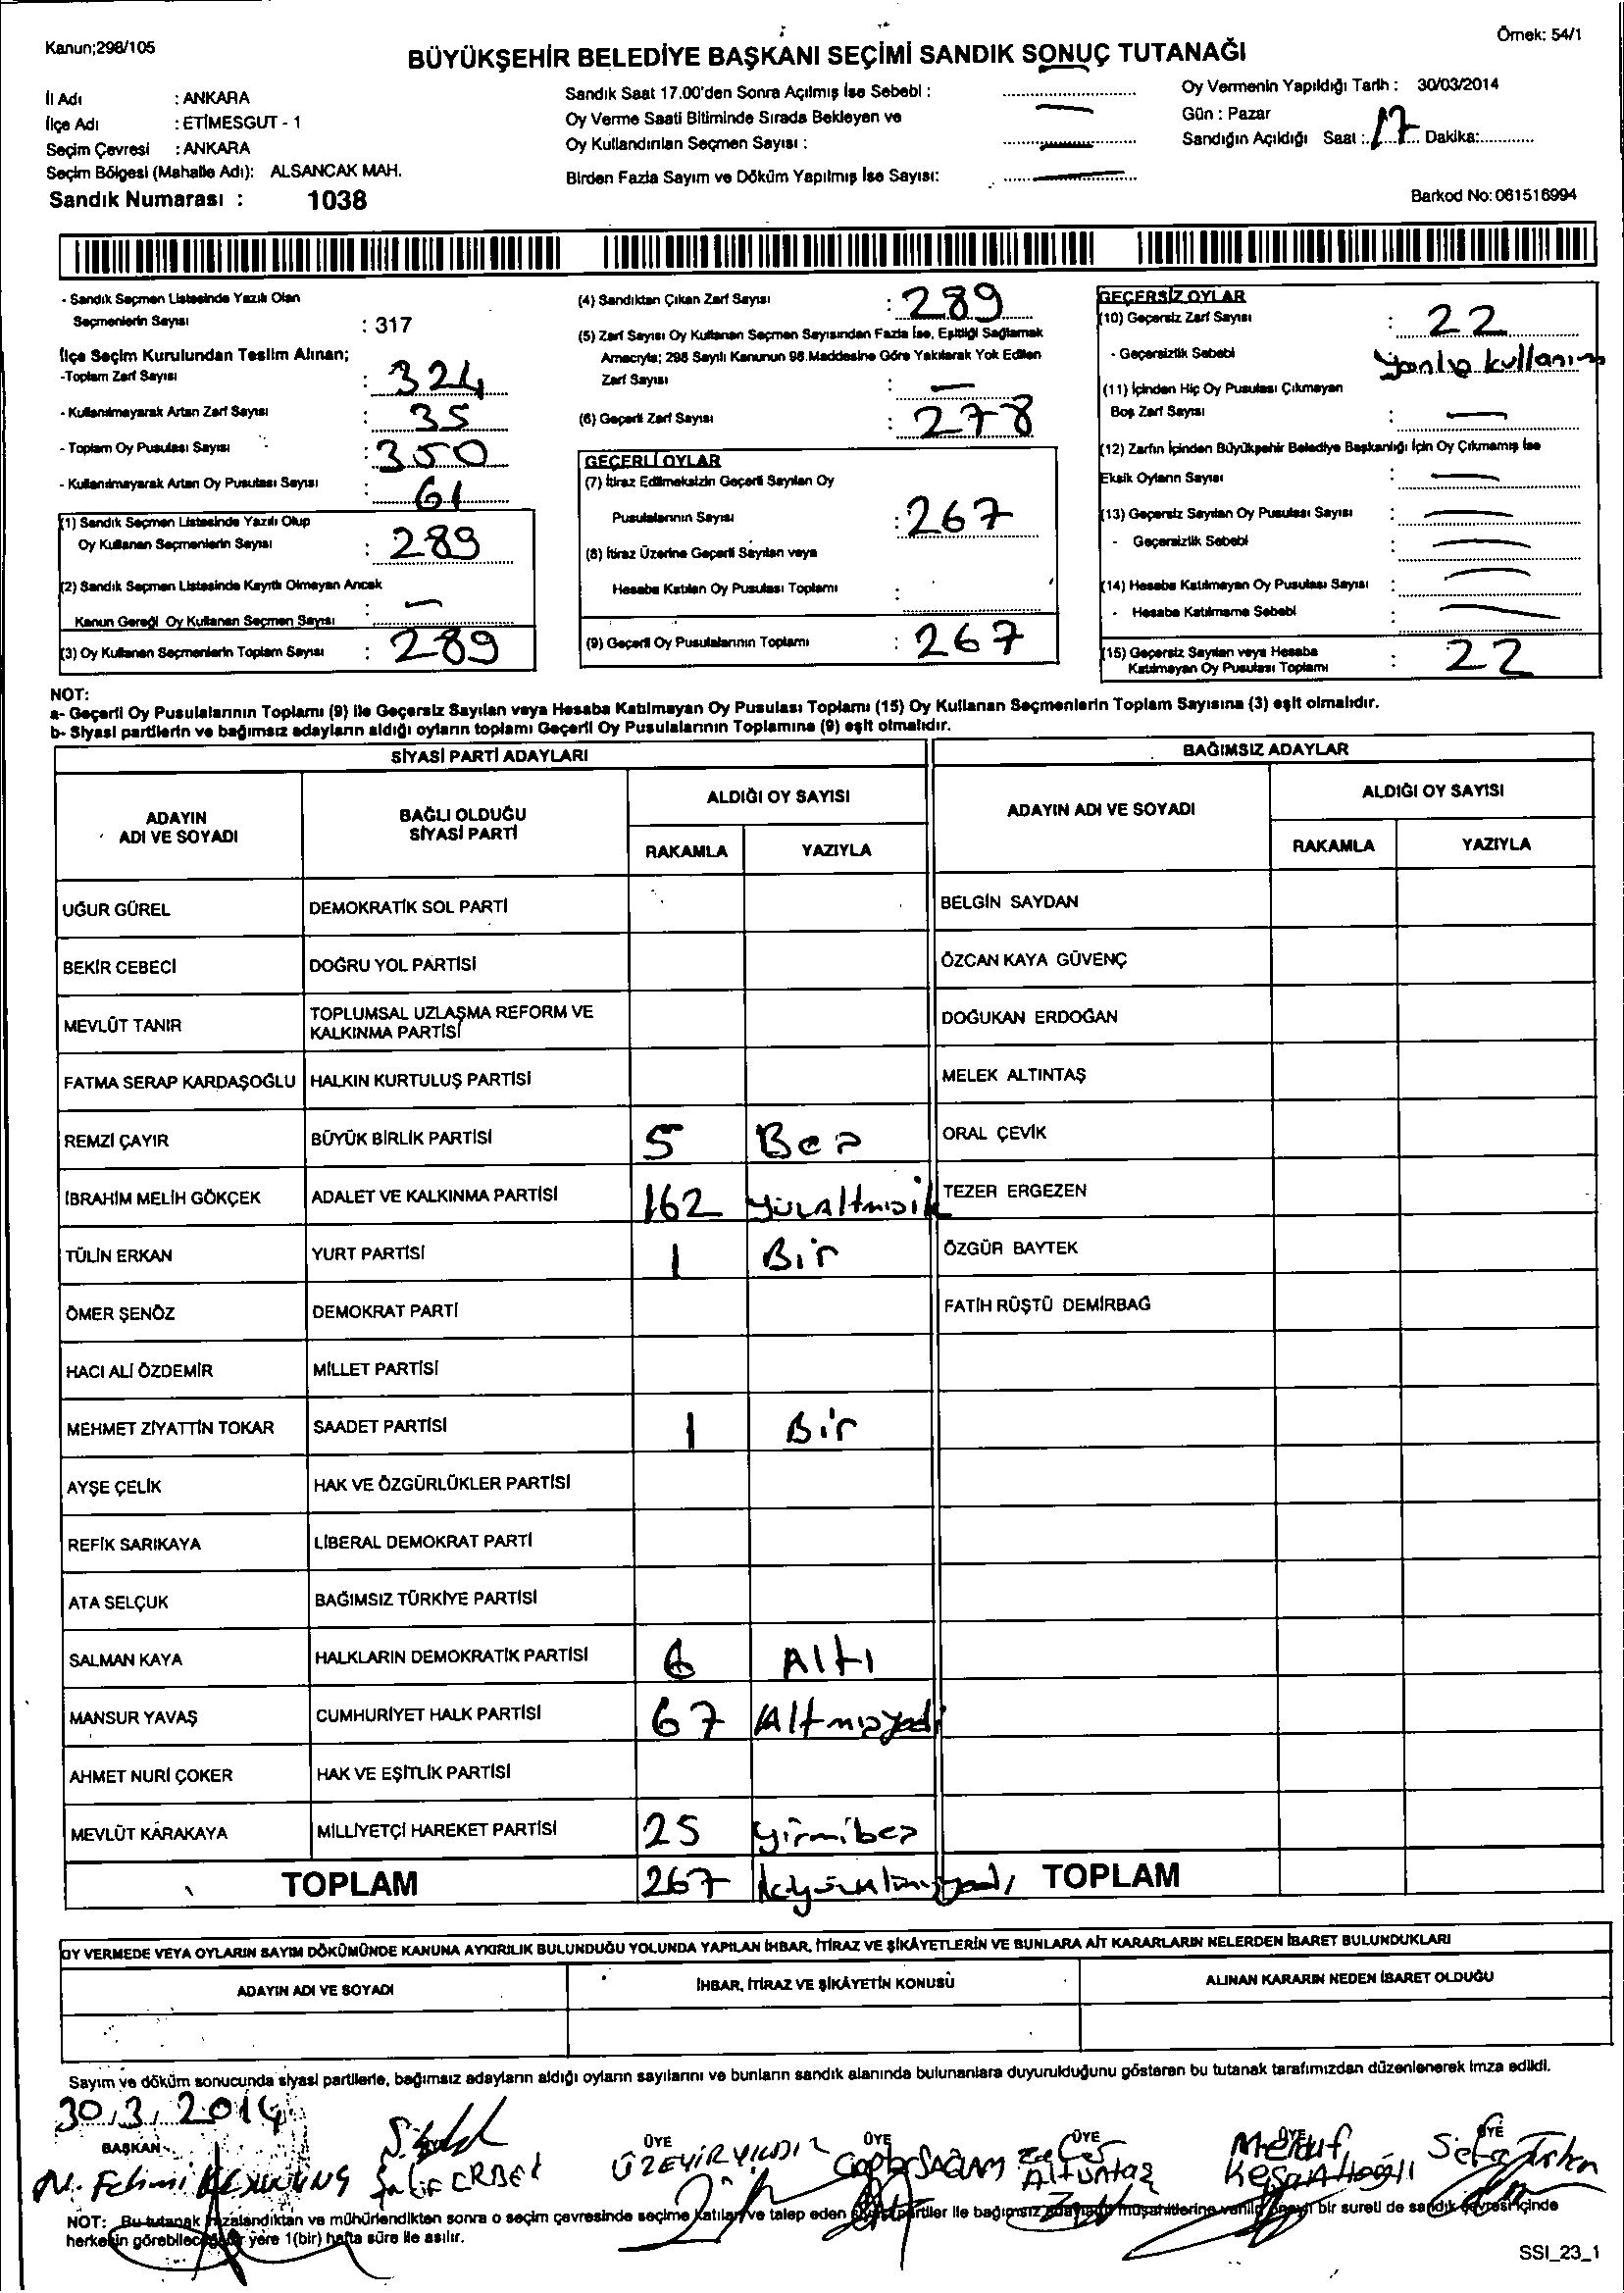 Kanun;298/105
Örnek: 54/1
BÜYÜKŞEHİR BELEDİYE BAŞKANI SEÇİMİ SANDIK SONUÇ TUTANAĞI
İl Adı : ANKARA
İlçe Adı : ETİMESGUT - 1
Seçim Çevresi : ANKARA
Seçim Bölgesi (Mahalle Adı): ALSANCAK MAH.
Sandık Numarası : 1038
Sandık Saat 17.00'den Sonra Açılmış İse Sebebi : ....................
Oy Verme Saati Bitiminde Sırada Bekleyen ve
Oy Kullandırılan Seçmen Sayısı : ....................
Birden Fazla Sayım ve Döküm Yapılmış İse Sayısı: ....................
Oy Vermenin Yapıldığı Tarih : 30/03/2014
Gün : Pazar
Sandığın Açıldığı Saat : 17 Dakika:............
Barkod No: 061516994
- Sandık Seçmen Listesinde Yazılı Olan
Seçmenlerin Sayısı : 317
İlçe Seçim Kurulundan Teslim Alınan;
-Toplam Zarf Sayısı : 324
- Kullanılmayarak Artan Zarf Sayısı : 35
- Toplam Oy Pusulası Sayısı : 350
- Kullanılmayarak Artan Oy Pusulası Sayısı : 61
(1) Sandık Seçmen Listesinde Yazılı Olup
Oy Kullanan Seçmenlerin Sayısı : 289
(2) Sandık Seçmen Listesinde Kayıtlı Olmayan Ancak
Kanun Gereği Oy Kullanan Seçmen Sayısı : —
(3) Oy Kullanan Seçmenlerin Toplam Sayısı : 289
(4) Sandıktan Çıkan Zarf Sayısı : 289
(5) Zarf Sayısı Oy Kullanan Seçmen Sayısından Fazla İse, Eşitliği Sağlamak
Amacıyla; 298 Sayılı Kanunun 98.Maddesine Göre Yakılarak Yok Edilen
Zarf Sayısı : —
(6) Geçerli Zarf Sayısı : 278
GEÇERLİ OYLAR
(7) İtiraz Edilmeksizin Geçerli Sayılan Oy
Pusulalarının Sayısı : 267
(8) İtiraz Üzerine Geçerli Sayılan veya
Hesaba Katılan Oy Pusulası Toplamı :
(9) Geçerli Oy Pusulalarının Toplamı : 267
GEÇERSİZ OYLAR
(10) Geçersiz Zarf Sayısı : 22
- Geçersizlik Sebebi Yanlış kullanım
(11) İçinden Hiç Oy Pusulası Çıkmayan
Boş Zarf Sayısı : —
(12) Zarfın İçinden Büyükşehir Belediye Başkanlığı İçin Oy Çıkmamış İse
Eksik Oyların Sayısı : —
(13) Geçersiz Sayılan Oy Pusulası Sayısı : —
- Geçersizlik Sebebi : —
(14) Hesaba Katılmayan Oy Pusulası Sayısı : —
- Hesaba Katılmama Sebebi : —
(15) Geçersiz Sayılan veya Hesaba
Katılmayan Oy Pusulası Toplamı : 22
NOT:
a- Geçerli Oy Pusulalarının Toplamı (9) ile Geçersiz Sayılan veya Hesaba Katılmayan Oy Pusulası Toplamı (15) Oy Kullanan Seçmenlerin Toplam Sayısına (3) eşit olmalıdır.
b- Siyasi partilerin ve bağımsız adayların aldığı oyların toplamı Geçerli Oy Pusulalarının Toplamına (9) eşit olmalıdır.
SİYASİ PARTİ ADAYLARI
BAĞIMSIZ ADAYLAR
ADAYIN ADI VE SOYADI
BAĞLI OLDUĞU SİYASİ PARTİ
ALDIĞI OY SAYISI
RAKAMLA YAZIYLA
ADAYIN ADI VE SOYADI
ALDIĞI OY SAYISI
RAKAMLA YAZIYLA
UĞUR GÜREL DEMOKRATİK SOL PARTİ BELGİN SAYDAN
BEKİR CEBECİ DOĞRU YOL PARTİSİ ÖZCAN KAYA GÜVENÇ
MEVLÜT TANIR TOPLUMSAL UZLAŞMA REFORM VE KALKINMA PARTİSİ DOĞUKAN ERDOĞAN
FATMA SERAP KARDAŞOĞLU HALKIN KURTULUŞ PARTİSİ MELEK ALTINTAŞ
REMZİ ÇAYIR BÜYÜK BİRLİK PARTİSİ 5 Beş ORAL ÇEVİK
İBRAHİM MELİH GÖKÇEK ADALET VE KALKINMA PARTİSİ 162 Yüzaltmışik TEZER ERGEZEN
TÜLİN ERKAN YURT PARTİSİ 1 Bir ÖZGÜR BAYTEK
ÖMER ŞENÖZ DEMOKRAT PARTİ FATİH RÜŞTÜ DEMİRBAĞ
HACI ALİ ÖZDEMİR MİLLET PARTİSİ
MEHMET ZİYATTİN TOKAR SAADET PARTİSİ 1 Bir
AYŞE ÇELİK HAK VE ÖZGÜRLÜKLER PARTİSİ
REFİK SARIKAYA LİBERAL DEMOKRAT PARTİ
ATA SELÇUK BAĞIMSIZ TÜRKİYE PARTİSİ
SALMAN KAYA HALKLARIN DEMOKRATİK PARTİSİ 6 Altı
MANSUR YAVAŞ CUMHURİYET HALK PARTİSİ 67 Altmışyedi
AHMET NURİ ÇOKER HAK VE EŞİTLİK PARTİSİ
MEVLÜT KARAKAYA MİLLİYETÇİ HAREKET PARTİSİ 25 Yirmibeş
TOPLAM 267 TOPLAM
OY VERMEDE VEYA OYLARIN SAYIM DÖKÜMÜNDE KANUNA AYKIRILIK BULUNDUĞU YOLUNDA YAPILAN İHBAR, İTİRAZ VE ŞİKÂYETLERİN VE BUNLARA AİT KARARLARIN NELERDEN İBARET BULUNDUKLARI
ADAYIN ADI VE SOYADI İHBAR, İTİRAZ VE ŞİKÂYETİN KONUSU ALINAN KARARIN NEDEN İBARET OLDUĞU
Sayım ve döküm sonucunda siyasi partilerle, bağımsız adayların aldığı oyların sayılarını ve bunların sandık alanında bulunanlara duyurulduğunu gösteren bu tutanak tarafımızdan düzenlenerek imza edildi.
30.3.2014
BAŞKAN ÜYE ÜYE ÜYE ÜYE ÜYE
N. Fehmi Salif ERBEK ÜZEYİR YILDIZ SAĞLAM Zafer ALTUNTAŞ Sefa
NOT: Bu tutanak imzalandıktan ve mühürlendikten sonra o seçim çevresinde seçime katılan ve talep eden siyasi partiler ile bağımsız adayların müşahitlerine verilir, onaylı bir sureti de sandık çevresi içinde
herkesin görebileceği bir yere 1(bir) hafta süre ile asılır.
SSI_23_1